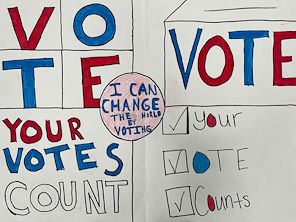 VO
TE
YOUR
VOTES
COUNT
I CAN
CHANGE
THE WORLD
BY
VOTING
VOTE
Your
VOTE
Counts